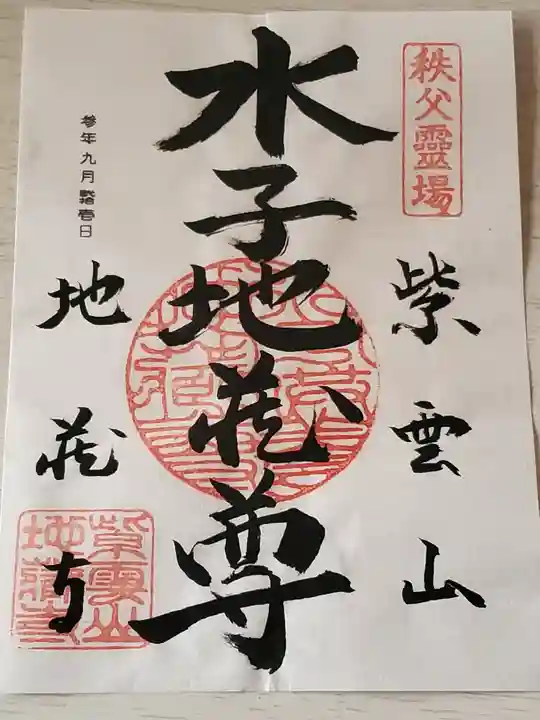 秩父靈場
紫雲山
水子地蔵尊
地蔵寺
参年九月貳拾壱日
紫雲山
地蔵寺